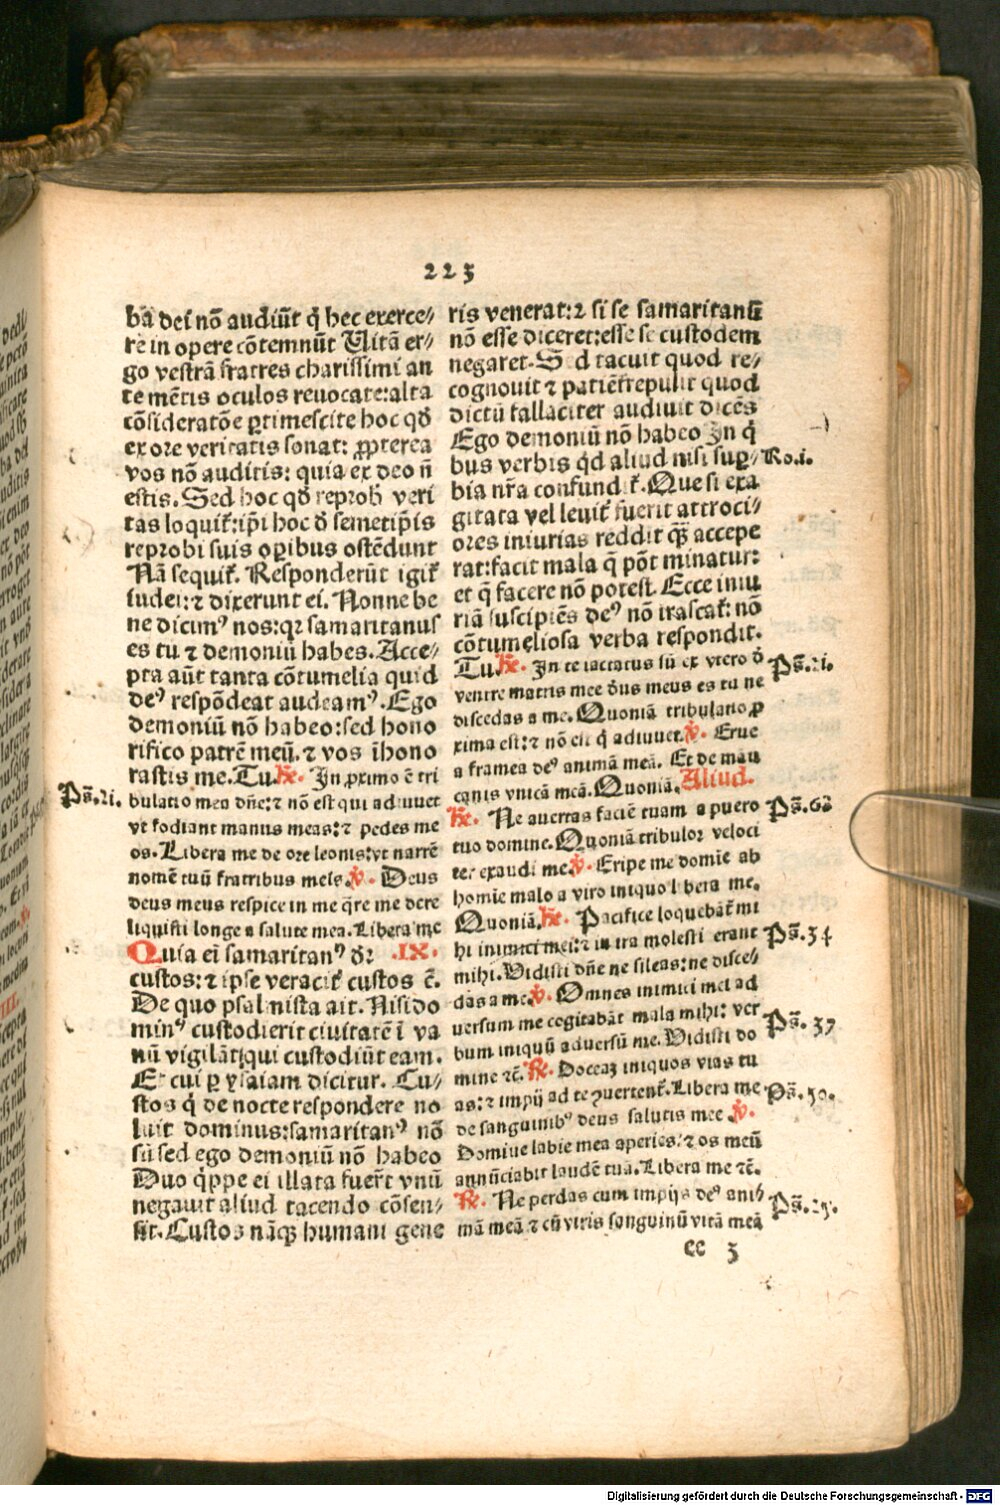 223
bā dei nō audiūt q̄ hec exerce/
re in opere cōtemnūt Uitā er/
go vestrā fratres charissimi an
te mētis oculos reuocate: alta
cōsideratōe ꝑtimescite hoc qd̄
ex ore veritatis sonat: ꝓpterea
vos nō auditis: quia ex deo n̄
estis. Sed hoc qd̄ reprob veri
tas loquit̄: ip̄i hoc d̄ semetip̄is
reprobi suis oꝑibus ostēdunt
Nā sequit̄. Responderūt igit̄
iudei: ⁊ dixerunt ei. Nonne be
ne dicimꝰ nos: qꝛ samaritanus
es tu ⁊ demoniū habes. Acce/
pta aūt tanta cōtumelia quid
deꝰ respōdeat audeamꝰ. Ego
demoniū nō habeo: sed hono
rifico patrē meū. ⁊ vos īhono
rastis me. Tu. ℟. In ꝓximo ē tri
Ps̄. 21. bulatio mea dn̄e: ⁊ nō est qui adiuuet
vt fodiant manus meas: ⁊ pedes me
os. Libera me de ore leonis: vt narrē
nomē tuū fratribus meis. ℣. Deus
deus meus respice in me q̄re me dere
liquisti longe a salute mea. Libera me
Quia ei samaritanꝰ dr̄: .IX.
custos: ⁊ ipse veracit̄ custos ē.
De quo psalmista ait. Nisi do
minꝰ custodierit ciuitatē ī va
nū vigilāt qui custodiūt eam.
Et cui ꝑ ysaiam dicitur. Cu/
stos q̄ de nocte respondere no
luit dominus: samaritanꝰ nō
sū sed ego demoniū nō habeo
Duo q̄ppe ei illata fuer̄t vnū
negauit aliud tacendo cōsen/
sit. Custos nāqꝫ humani gene
ris venerat: ⁊ si se samaritanū
nō esse diceret: esse se custodem
negaret. S d tacuit quod re/
cognouit ⁊ patiēt repulit quod
dictū fallaciter audiuit dicēs
Ego demoniū nō habeo In q̄
bus verbis qd̄ aliud nisi suꝑ/ Ro.i.
bia nr̄a confundit̄. Que si exa
gitata vel leuit̄ fuerit attroci/
ores iniurias reddit qꝫ accepe
rat: facit mala q̄ pōt minatur:
et q̄ facere nō potest. Ecce iniu
riā suscipiēs deꝰ nō irascat̄: nō
cōtumeliosa verba respondit.
Tu. ℟. In te iactatus sū ex vtero d̄ Ps̄. 21.
ventre matris mee deus meus es tu ne
discedas a me. Quoniā tribulatio ꝓ
xima est: ⁊ nō est q̄ adiuuet. ℣. Erue
a framea deꝰ animā meā. Et de manu
canis vnicā meā. Quoniā. Aliud.
℟. Ne auertas faciē tuam a puero Ps̄. 68
tuo domine. Quoniā tribulor veloci
ter exaudi me. ℣. Eripe me domīe ab
homīe malo a viro iniquo libera me.
Quoniā. ℟. Pacifice loquebāt̄ mi
hi inimici mei: ⁊ in ira molesti erant Ps̄. 34
mihi. Vidisti dn̄e ne sileas: ne disce/
das a me. ℣. Omnes inimici mei ad
uersum me cogitabāt mala mihi: ver Ps̄. 37
bum iniquū aduersū me. Vidisti do
mine ⁊c̄. ℟. Doceaꝫ iniquos vias tu
as: ⁊ impij ad te ꝯuertent̄. Libera me Ps̄. 50.
de sanguinibꝰ deus salutis mee ℣.
Domine labie mea aperies: ⁊ os meū
annūciabit laudē tuā. Libera me ⁊c̄.
℟. Ne perdas cum impijs deꝰ ani/ Ps̄. 25.
mā meā ⁊ cū viris sanguinū vitā meā
cc 3
Digitalisierung gefördert durch die Deutsche Forschungsgemeinschaft - DFG